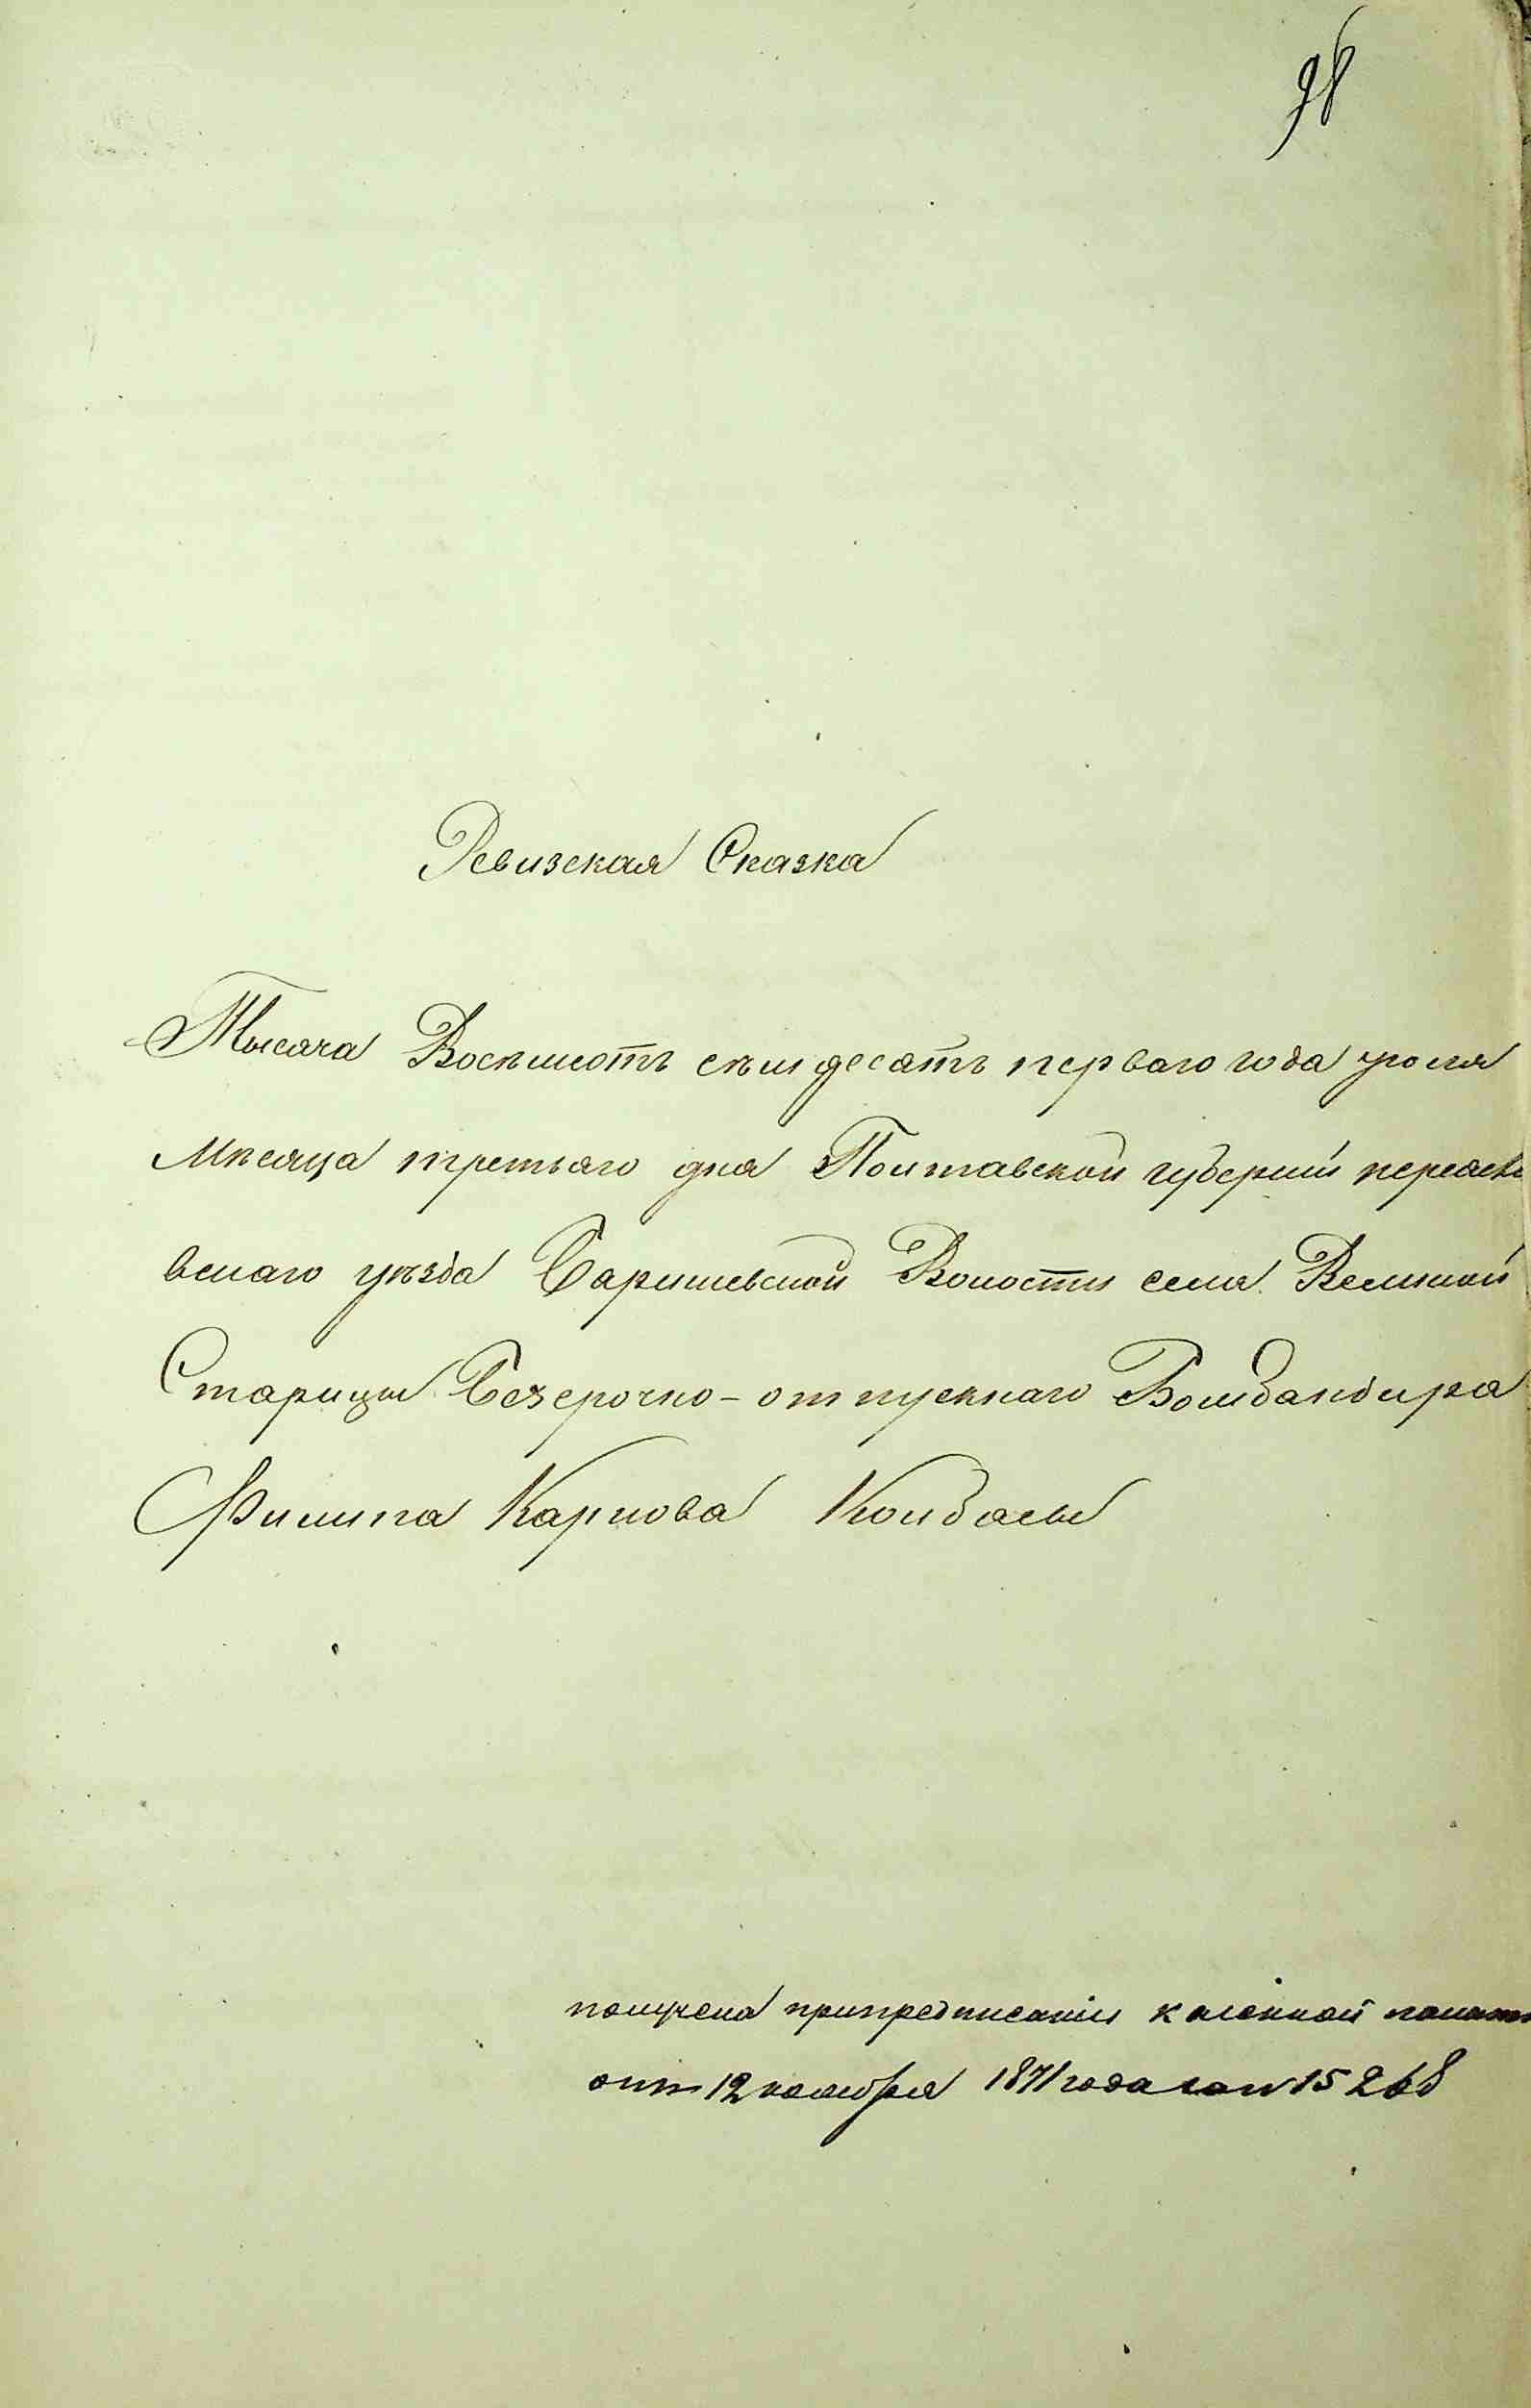 98
Ревизская Сказка
Тысяча Восемьсотъ семъдесятъ перваго года Июля
Мѣсяца третьяго дня Полтавской губерніи переясла
вскаго уѣзда Баришевской Волости села Великой
Старицы Безсрочно-отпускнаго Бомбандира
Филипа Карпова Колбасы
получена припредписаніи казенной палаты
отъ 12 ноября 1871 года за N 15268